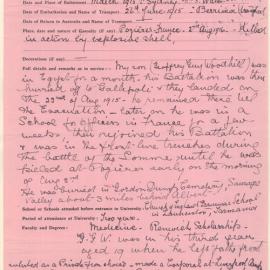 Date and Place of Enlistment: March 1915 - Sydney
Date of Embarkation and Name of Transport: 26th June 1915 - Berrima
Date of Return to Australia and Name of Transport:
Place, date and nature of Casualty (if any): Pozières France - 2nd Aug 1916 - Killed
in action by explosive shell.
My son Geoffrey Guy Woodhill was
in Egypt for a month, his Battalion was then
hurried off to Gallipoli & they landed on
the 22nd of Aug 1915 - he remained there till
the Evacuation - later on he was in a
School for officers in France, for a few
weeks, then rejoined his Battalion
& was in the front line trenches during
the battle of the Somme until he was
killed at Pozieres early on the morning
of Aug 2nd
He was buried in Gordon Dump Cemetery, Sausage
Valley about
School or Schools attended before entrance to University: Grammar School
Launceston, Tasmania
Period of attendance at University: Two years
Faculty and Degrees: Medicine. Renwick Scholarship.
G.G.W. was in his third year,
aged 19 when he left for the front
enlisted as a Private